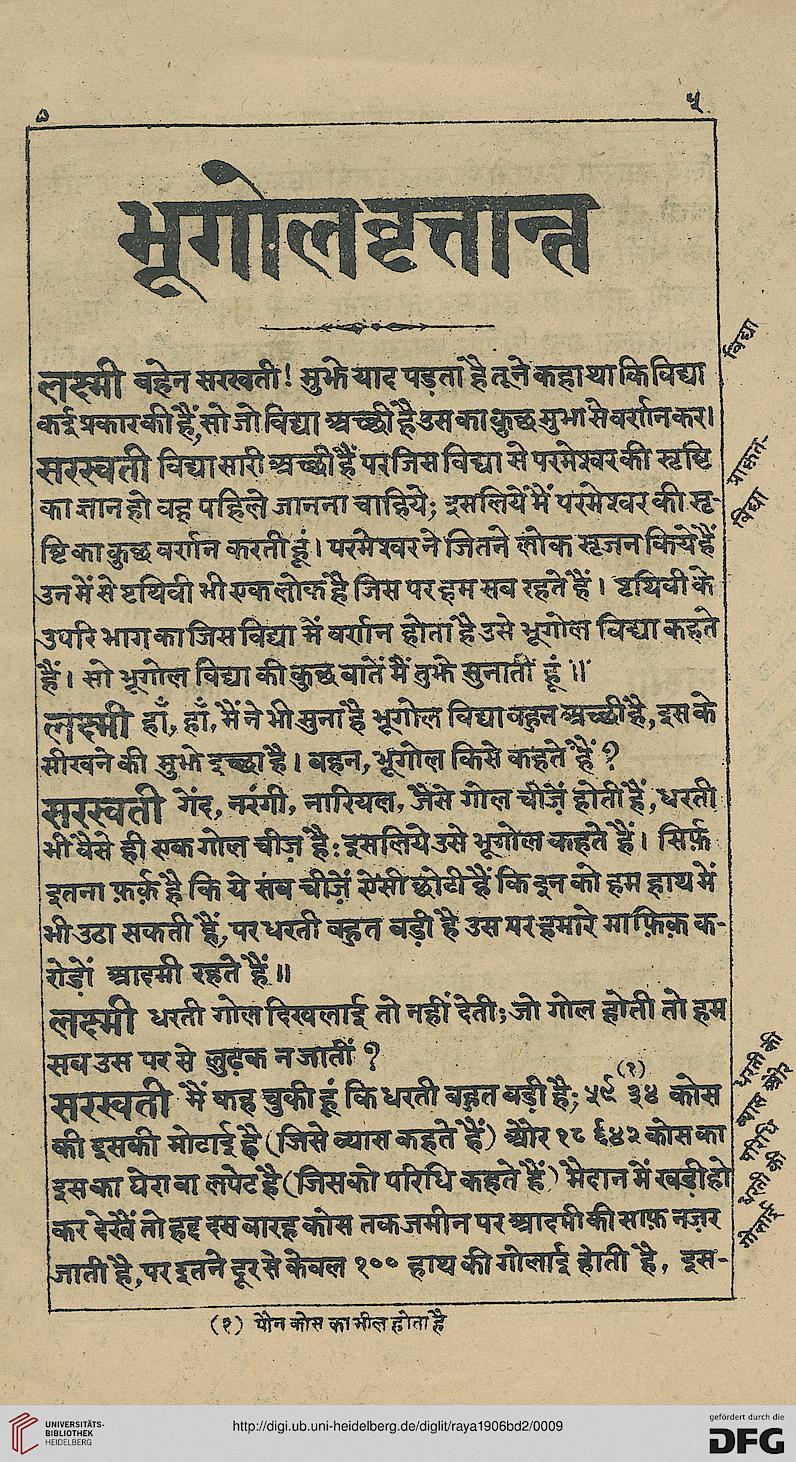 ७ ५
भूगोलवृत्तान्त
लक्ष्मी बहेन सरस्वती! मुझे याद पड़ता है तूने कहा था कि विद्या
विद्या
कई प्रकार की हैं, सो जो विद्या अच्छी है उस का कुछ मुझ से वर्णन कर।
सरस्वती विद्या सारी अच्छी हैं पर जिस विद्या से परमेश्वर की सृष्टि
प्राकृत-
का ज्ञान हो वह पहिले जानना चाहिये; इसलिये मैं परमेश्वर की सृ-
विद्या
ष्टि का कुछ वर्णन करती हूं। परमेश्वर ने जितने लोक सृजन किये हैं
उन में से पृथिवी भी एक लोक है जिस पर हम सब रहते हैं। पृथिवी के
उपरि भाग का जिस विद्या में वर्णन होता है उसे भूगोल विद्या कहते
हैं। सो भूगोल विद्या की कुछ बातें मैं तुझे सुनाती हूं॥
लक्ष्मी हाँ, हाँ, मैं ने भी सुना है भूगोल विद्या बहुत अच्छी है, इस के
सीखने की मुझे इच्छा है। बहन, भूगोल किसे कहते हैं?
सरस्वती गेंद, नरंगी, नारियल, जैसे गोल चीज़ें होती हैं, धरती
भी वैसे ही एक गोल चीज़ है: इसलिये उसे भूगोल कहते हैं। सिर्फ़
इतना फ़र्क़ है कि ये सब चीज़ें ऐसी छोटी हैं कि इन को हम हाथ में
भी उठा सकती हैं, पर धरती बहुत बड़ी है उस पर हमारे माफ़िक़ क-
रोड़ों आदमी रहते हैं॥
लक्ष्मी धरती गोल दिखलाई तो नहीं देती; जो गोल होती तो हम
सब उस पर से लुढ़क न जातीं?
सरस्वती मैं कह चुकी हूं कि धरती बहुत बड़ी है; ५९३४ (१) कोस
की इसकी मोटाई है (जिसे व्यास कहते हैं) और १८६४२ कोस का
धरती की
व्यास और
इस का घेरा वा लपेट है (जिसको परिधि कहते हैं) मैदान में खड़ी हो
परिधि
कर देखें तो हद्द दस बारह कोस तक जमीन पर आदमी की साफ़ नज़र
धरती की
गोलाई
जाती है, पर इतने दूर से केवल १०० हाथ की गोलाई होती है, इस-
(१) पौन कोस का मील होता है
UNIVERSITÄTS-
BIBLIOTHEK
HEIDELBERG
http://digi.ub.uni-heidelberg.de/diglit/raya1906bd2/0009
gefördert durch die
DFG